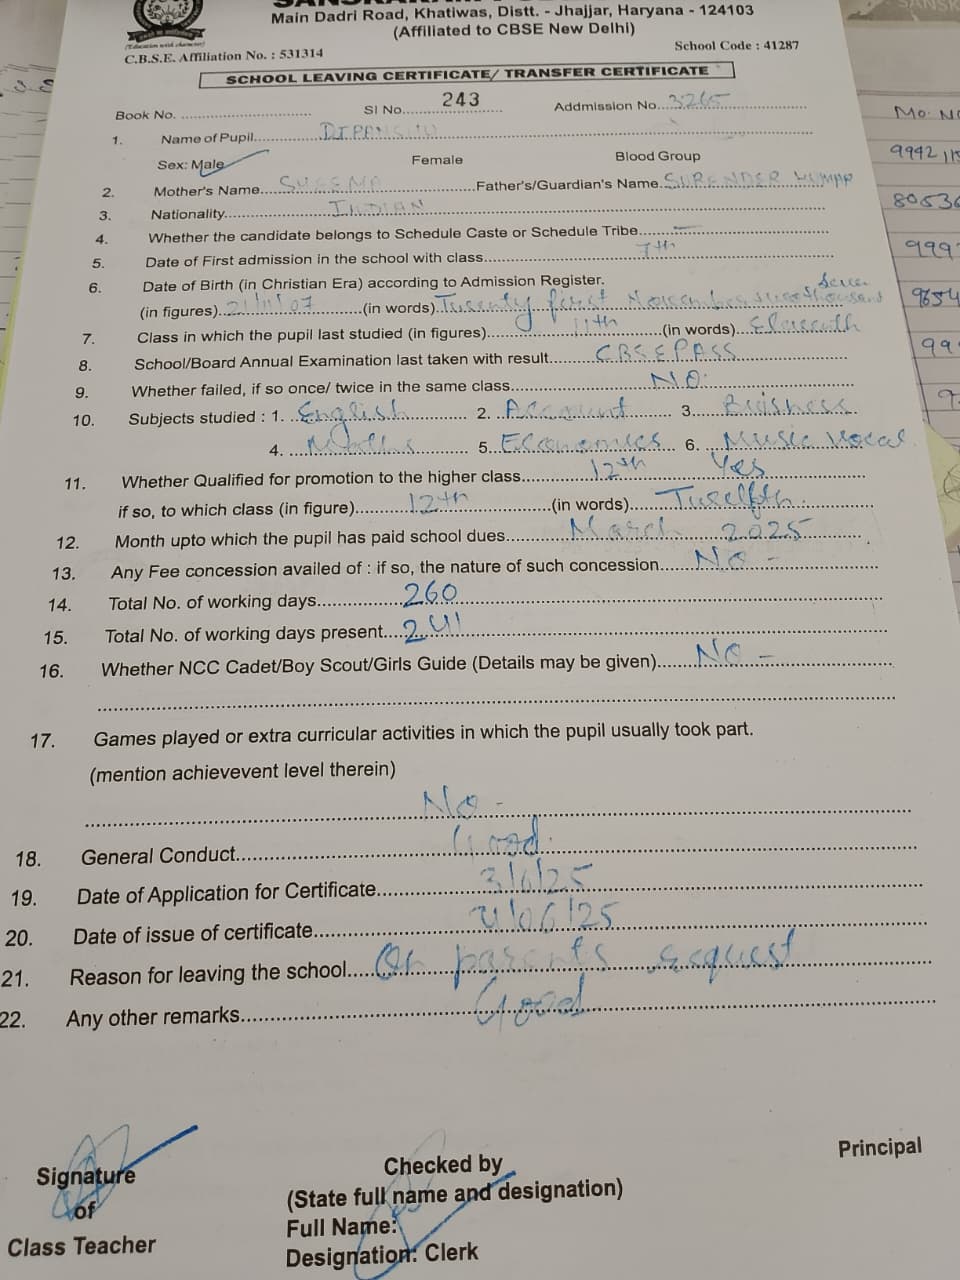 Main Dadri Road, Khatiwas, Distt. - Jhajjar, Haryana - 124103
(Affiliated to CBSE New Delhi)
(Education with character)
C.B.S.E. Affiliation No. : 531314 School Code : 41287
SCHOOL LEAVING CERTIFICATE/ TRANSFER CERTIFICATE
Book No. Sl No. 243 Addmission No. 3265
1. Name of Pupil DIPANSHU
Sex: Male Female Blood Group
2. Mother's Name Father's/Guardian's Name SURENDER KUMAR
3. Nationality INDIAN
4. Whether the candidate belongs to Schedule Caste or Schedule Tribe —
5. Date of First admission in the school with class 7th
6. Date of Birth (in Christian Era) according to Admission Register.
(in figures) 21/11/07 (in words) Twenty first November two thousand Seven
7. Class in which the pupil last studied (in figures) 11th (in words) Eleventh
8. School/Board Annual Examination last taken with result CBSE PASS
9. Whether failed, if so once/ twice in the same class NO.
10. Subjects studied : 1. English 2. Account 3. Buisness
4. Maths 5. Economics 6. Music Vocal
11. Whether Qualified for promotion to the higher class 12th Yes
if so, to which class (in figure) 12th (in words) Twelfth.
12. Month upto which the pupil has paid school dues March 2025
13. Any Fee concession availed of : if so, the nature of such concession No -
14. Total No. of working days 260
15. Total No. of working days present 241
16. Whether NCC Cadet/Boy Scout/Girls Guide (Details may be given) No -
17. Games played or extra curricular activities in which the pupil usually took part.
(mention achievevent level therein)
No -
18. General Conduct Good.
19. Date of Application for Certificate 3/6/25
20. Date of issue of certificate /06/25
21. Reason for leaving the school On parents request
22. Any other remarks Good
Signature
of
Class Teacher
Checked by
(State full name and designation)
Full Name:
Designation: Clerk
Principal
Mo. No